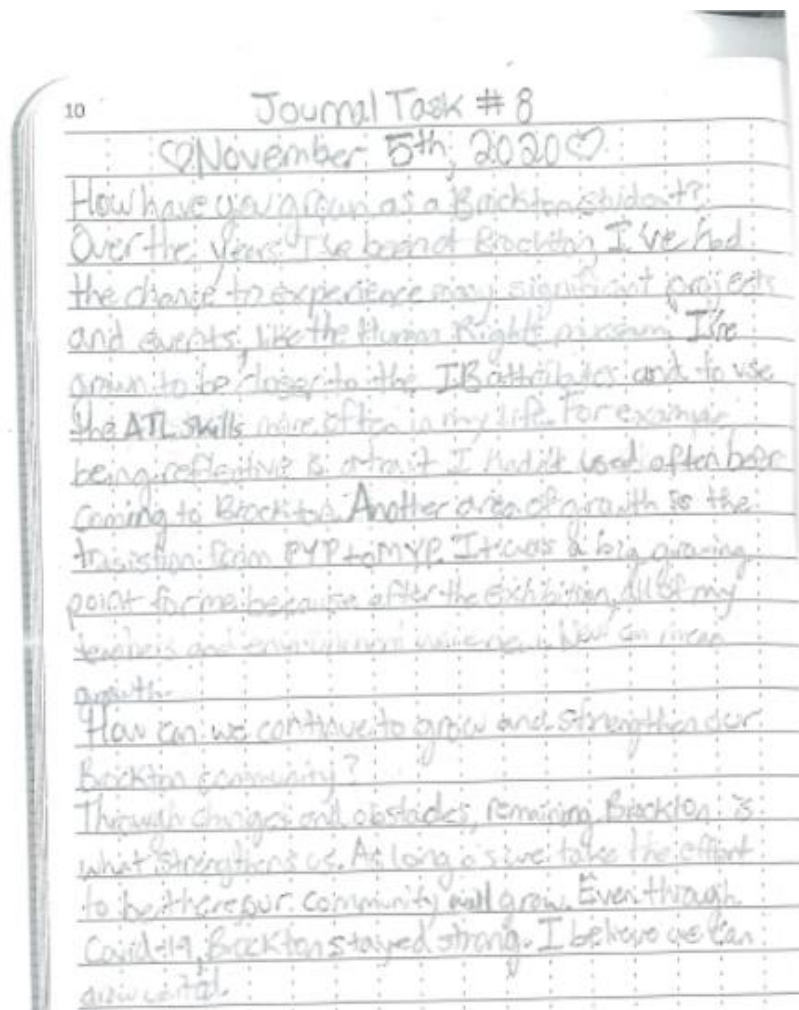 10
Journal Task # 8
♡November 5th, 2020♡
How have you grown as a Brockton student?
Over the years I've been at Brockton I've had
the chance to experience many significant projects
and events, like the Human Rights museum. I've
grown to be closer to the IB attributes and to use
the ATL skills more often in my life. For example
being reflective is a trait I hadn't used often
coming to Brockton. Another area of growth is the
from PYP to MYP. It was a big growing
point for me because after the exhibition, all of my
teachers and environment were new. New can mean
growth.
How can we continue to grow and strengthen our
Brockton community?
Through changes and obstacles, remaining Brockton is
what strengthens us. As long as we take the effort
to be there our community will grow. Even through
Covid-19, Brockton stayed strong. I believe we can
grow